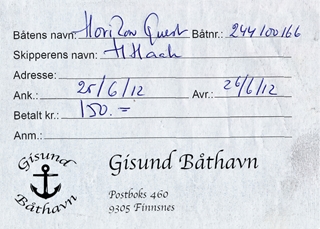 Båtens navn: Horizon Quest Båtnr.: 244100166
Skipperens navn: H Hach
Adresse:
Ank.: 25/6/12 Avr.: 26/6/12
Betalt kr.: 150.=
Anm.:
Gisund Båthavn
Gisund Båthavn
Postboks 460
9305 Finnsnes